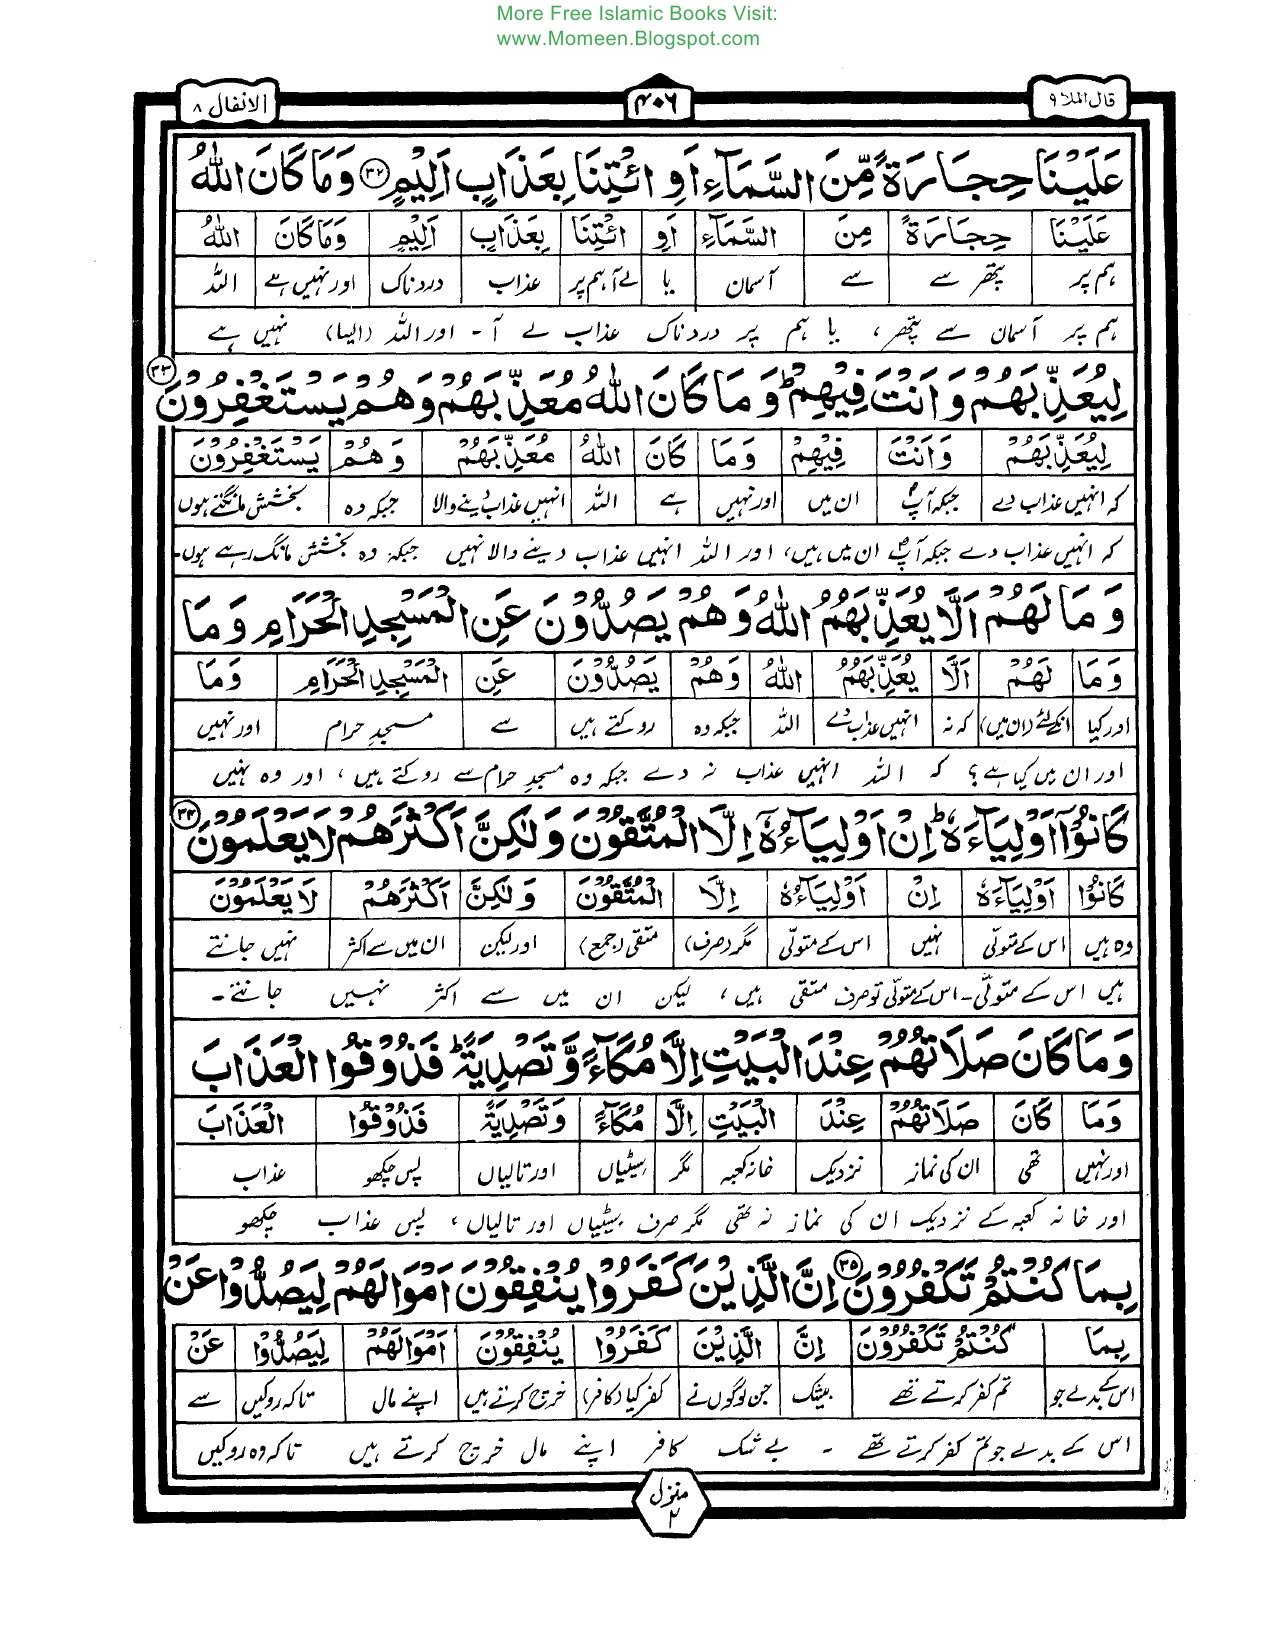 More Free Islamic Books Visit:
www.Momeen.Blogspot.com
قال الملا ۹
۴۰۶
الانفال ۸
عَلَيْنَا حِجَارَةً مِّنَ السَّمَآءِ اَوِ ائْتِنَا بِعَذَابٍ اَلِيْمٍ ۳۲ وَمَا كَانَ اللّٰهُ
عَلَيْنَا حِجَارَةً مِنَ السَّمَآءِ اَوِ ائْتِنَا بِعَذَابٍ اَلِيْمٍ وَمَا كَانَ اللّٰهُ
ہم پر پتھر سے سے آسمان یا لے آ ہم پر عذاب دردناک اور نہیں ہے اللہ
ہم پر آسمان سے پتھر، یا ہم پر دردناک عذاب لے آ۔ اور اللہ (ایسا) نہیں ہے
لِيُعَذِّبَهُمْ وَاَنْتَ فِيْهِمْ ؕ وَمَا كَانَ اللّٰهُ مُعَذِّبَهُمْ وَهُمْ يَسْتَغْفِرُوْنَ ۳۳
لِيُعَذِّبَهُمْ وَاَنْتَ فِيْهِمْ وَمَا كَانَ اللّٰهُ مُعَذِّبَهُمْ وَهُمْ يَسْتَغْفِرُوْنَ
کہ انہیں عذاب دے جبکہ آپؐ ان میں اور نہیں ہے اللہ انہیں عذاب دینے والا جبکہ وہ بخشش مانگتے ہوں
کہ انہیں عذاب دے جبکہ آپؐ ان میں ہیں، اور اللہ انہیں عذاب دینے والا نہیں جبکہ وہ بخشش مانگ رہے ہوں۔
وَمَا لَهُمْ اَلَّا يُعَذِّبَهُمُ اللّٰهُ وَهُمْ يَصُدُّوْنَ عَنِ الْمَسْجِدِ الْحَرَامِ وَمَا
وَمَا لَهُمْ اَلَّا يُعَذِّبَهُمُ اللّٰهُ وَهُمْ يَصُدُّوْنَ عَنِ الْمَسْجِدِ الْحَرَامِ وَمَا
اور کیا انکے لئے (ان میں) کہ نہ انہیں عذاب دے اللہ جبکہ وہ روکتے ہیں سے مسجدِ حرام اور نہیں
اور ان میں کیا ہے؟ کہ اللہ انہیں عذاب نہ دے جبکہ وہ مسجدِ حرام سے روکتے ہیں، اور وہ نہیں
كَانُوْٓا اَوْلِيَآءَهٗ ؕ اِنْ اَوْلِيَآؤُهٗٓ اِلَّا الْمُتَّقُوْنَ وَلٰكِنَّ اَكْثَرَهُمْ لَا يَعْلَمُوْنَ ۳۴
كَانُوْا اَوْلِيَآءَهٗ اِنْ اَوْلِيَآؤُهٗ اِلَّا الْمُتَّقُوْنَ وَلٰكِنَّ اَكْثَرَهُمْ لَا يَعْلَمُوْنَ
وہ ہیں اس کے متولّی نہیں اس کے متولّی مگر (صرف) متقی (جمع) اور لیکن ان میں سے اکثر نہیں جانتے
ہیں اس کے متولّی۔ اس کے متولّی تو صرف متقی ہیں، لیکن ان میں سے اکثر نہیں جانتے۔
وَمَا كَانَ صَلَاتُهُمْ عِنْدَ الْبَيْتِ اِلَّا مُكَآءً وَّتَصْدِيَةً ؕ فَذُوْقُوا الْعَذَابَ
وَمَا كَانَ صَلَاتُهُمْ عِنْدَ الْبَيْتِ اِلَّا مُكَآءً وَتَصْدِيَةً فَذُوْقُوا الْعَذَابَ
اور نہیں تھی ان کی نماز نزدیک خانہ کعبہ مگر سیٹیاں اور تالیاں پس چکھو عذاب
اور خانہ کعبہ کے نزدیک ان کی نماز نہ تھی مگر صرف سیٹیاں اور تالیاں، پس عذاب چکھو
بِمَا كُنْتُمْ تَكْفُرُوْنَ ۳۵ اِنَّ الَّذِيْنَ كَفَرُوْا يُنْفِقُوْنَ اَمْوَالَهُمْ لِيَصُدُّوْا عَنْ
بِمَا كُنْتُمْ تَكْفُرُوْنَ اِنَّ الَّذِيْنَ كَفَرُوْا يُنْفِقُوْنَ اَمْوَالَهُمْ لِيَصُدُّوْا عَنْ
اس کے بدلے جو تم کفر کرتے تھے بیشک جن لوگوں نے کفر کیا (کافر) خرچ کرتے ہیں اپنے مال تاکہ روکیں سے
اس کے بدلے جو تم کفر کرتے تھے ۔ بے شک کافر اپنے مال خرچ کرتے ہیں تاکہ وہ روکیں
منزل
۲